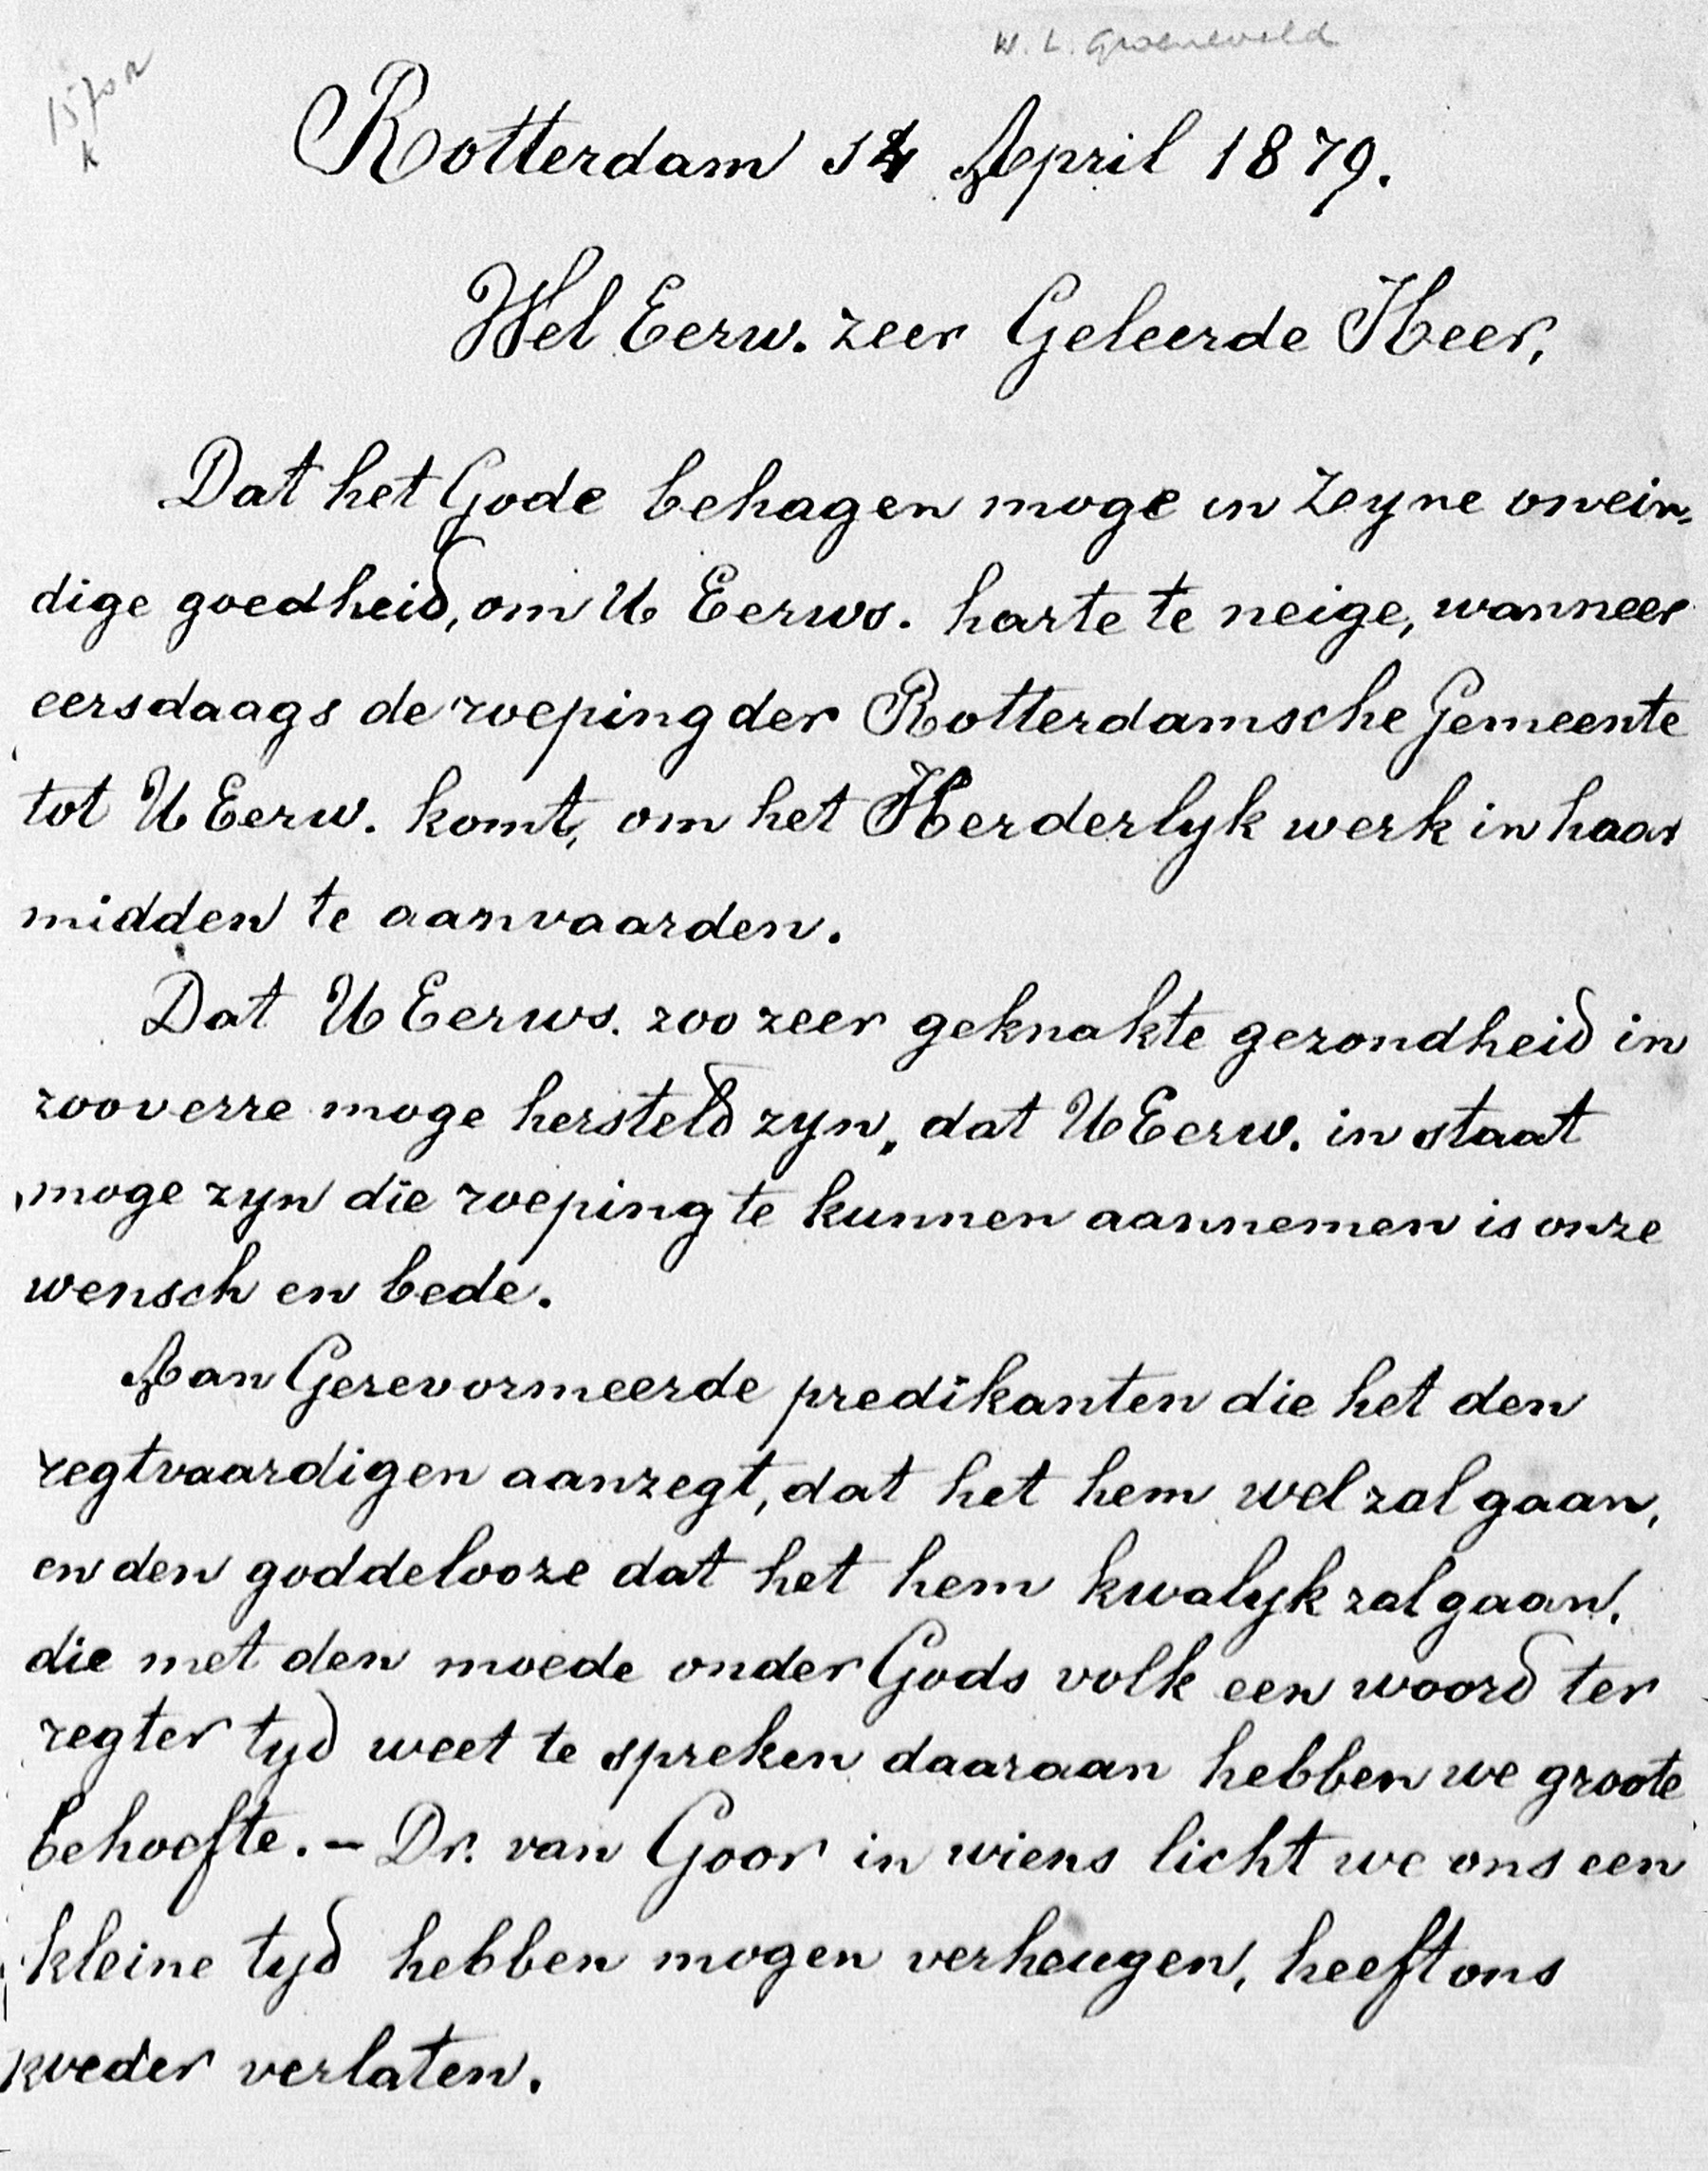 W. L. Groeneveld
Rotterdam 14 April 1879.
Wel Eerw. zeer Geleerde Heer,
Dat het Gode behagen moge in Zyne onein-
dige goedheid, om U Eerws. harte te neige, wanneer
eersdaags de roeping der Rotterdamsche Gemeente
tot U Eerw. komt, om het Herderlyk werk in haar
midden te aanvaarden.
Dat U Eerws. zoo zeer geknakte gezondheid in
zooverre moge hersteld zyn, dat U Eerw. in staat
moge zyn die roeping te kunnen aannemen is onze
wensch en bede.
Aan Gerevormeerde predikanten die het den
regtvaardigen aanzegt, dat het hem wel zal gaan,
en den goddelooze dat het hem kwalyk zal gaan,
die met den moede onder Gods volk een woord ter
regter tyd weet te spreken daaraan hebben we groote
behoefte. – Dr. van Goor in wiens licht we ons een
kleine tyd hebben mogen verheugen, heeft ons
weder verlaten.